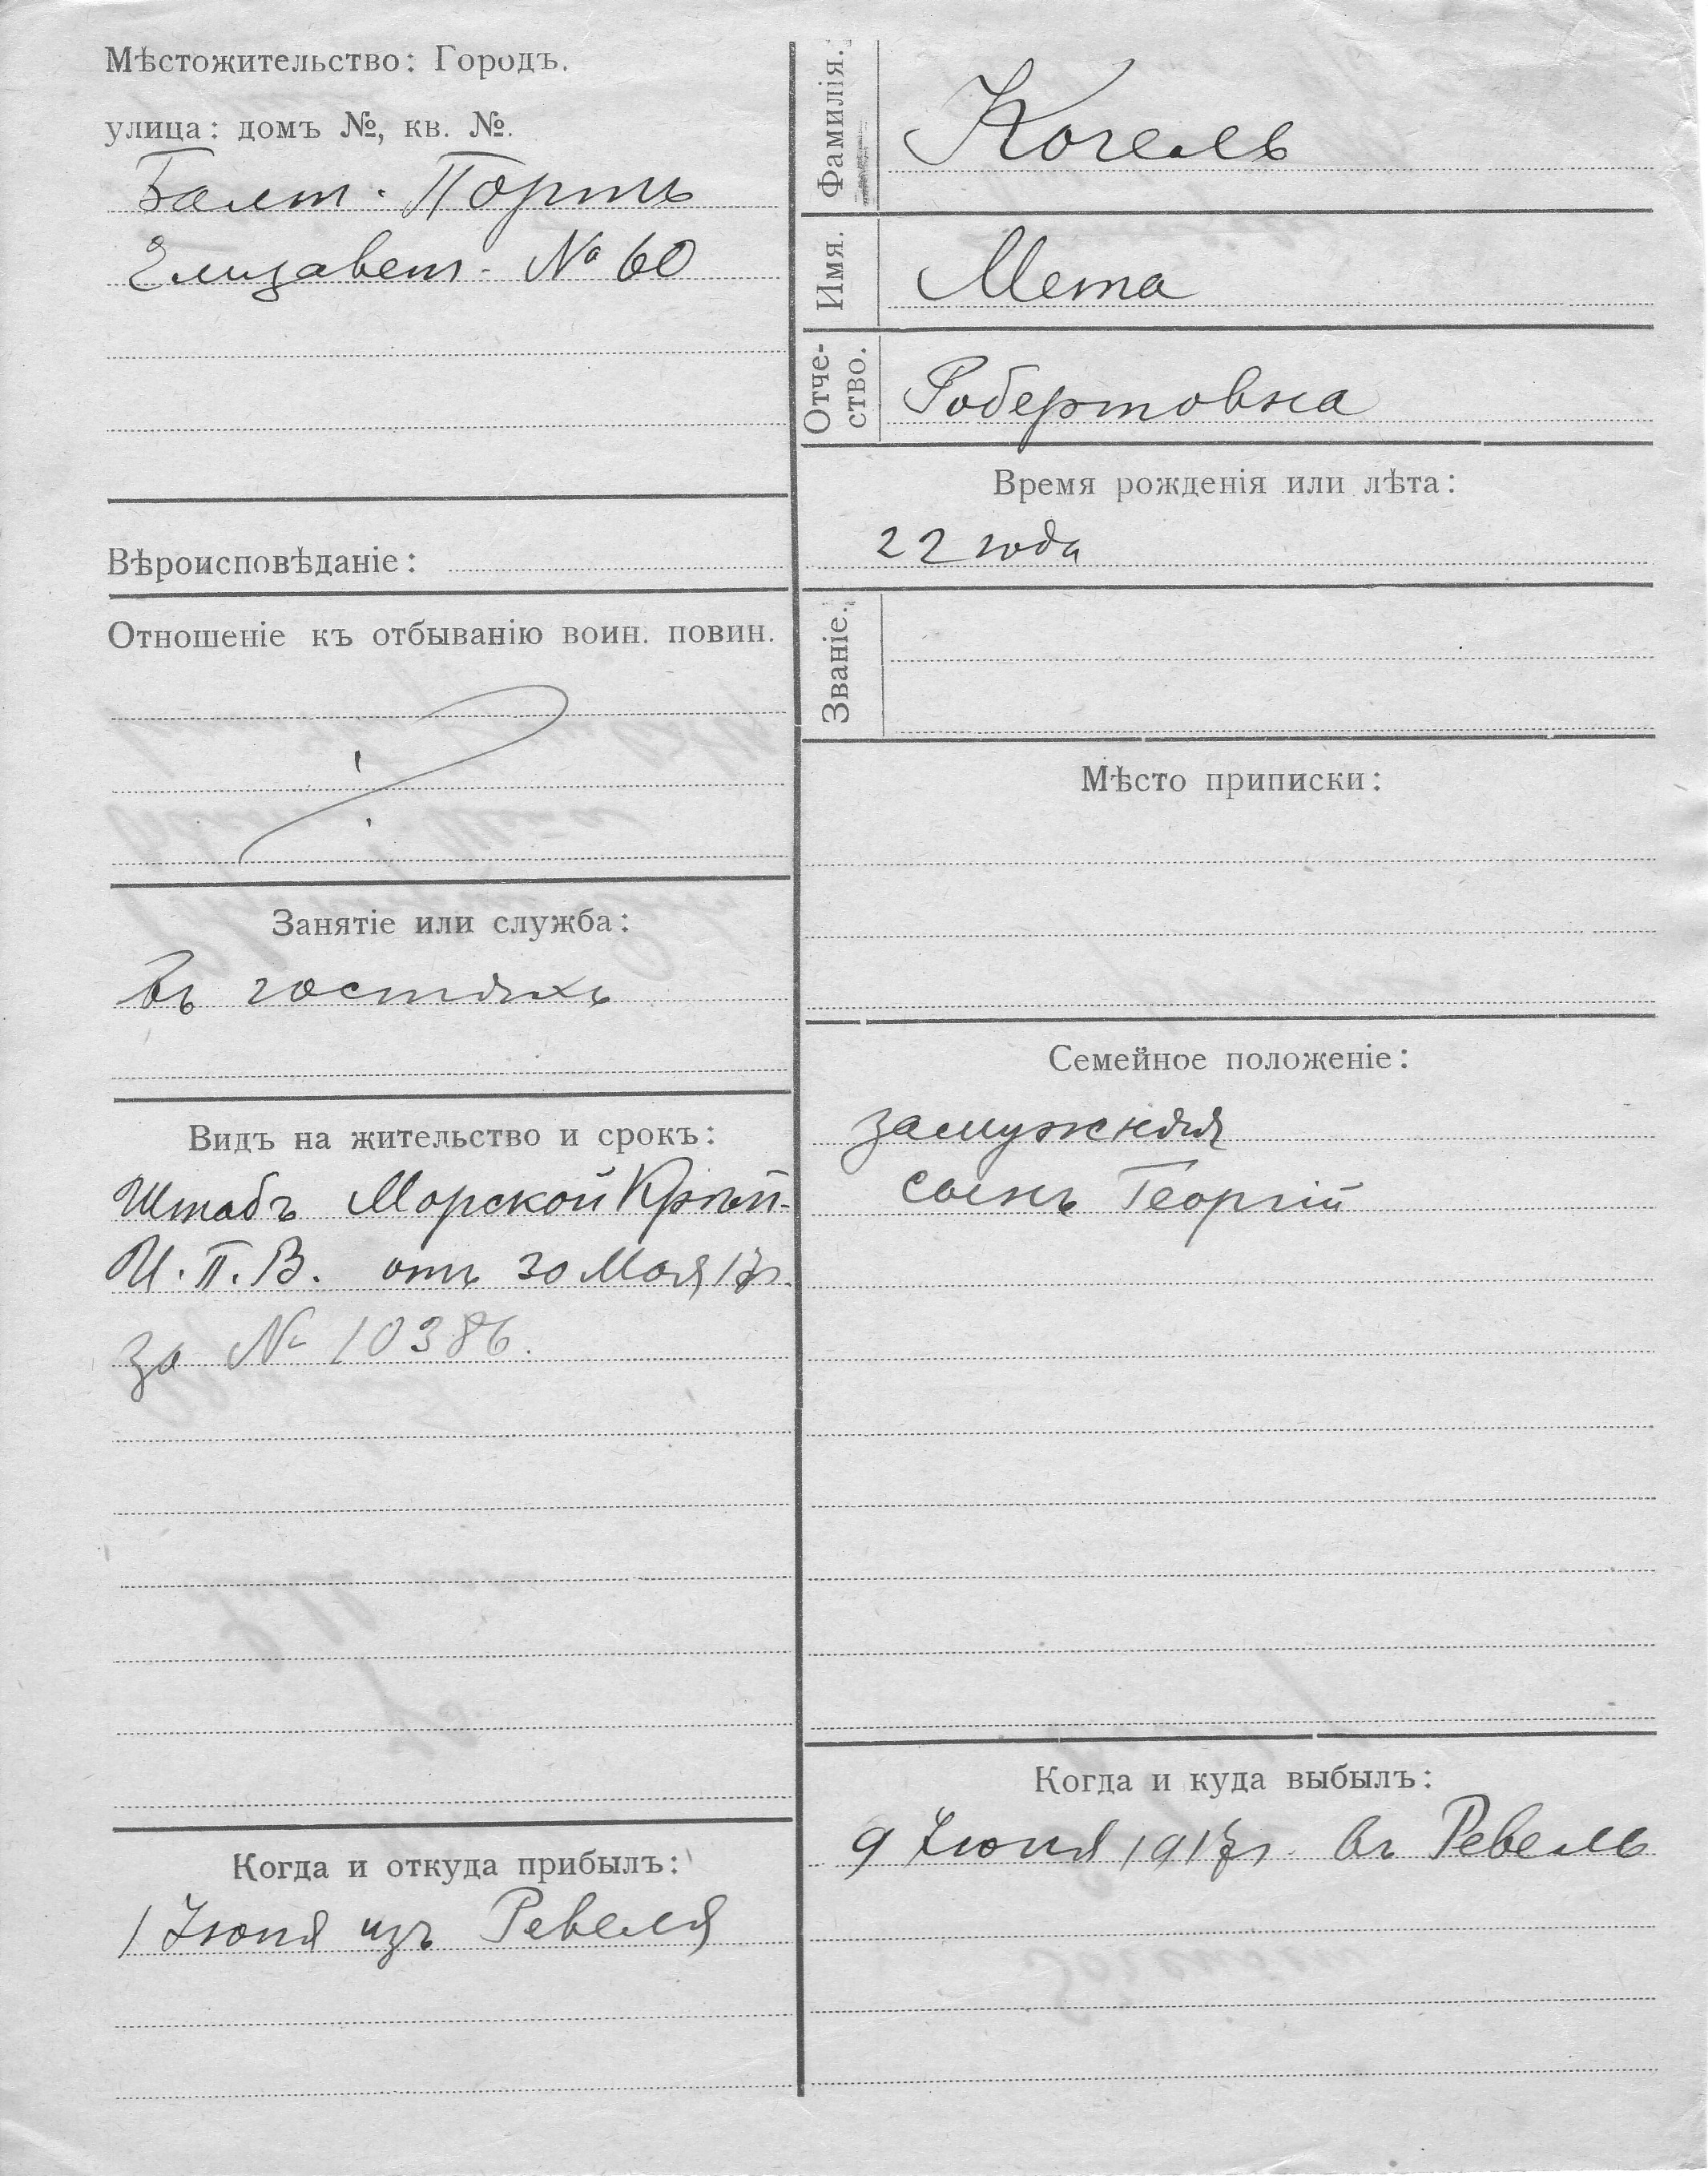 Мѣстожительство: Городъ.
улица: домъ №, кв. №.
Балт. Портъ
Елизавет. № 60
Вѣроисповѣданіе:
Отношеніе къ отбыванію воин. повин.
Занятіе или служба:
въ гостяхъ
Видъ на жительство и срокъ:
Штабъ Морской Крѣп.
И. П. В. отъ 30 Мая 17г.
за № 10386.
Когда и откуда прибылъ:
1 Іюня изъ Ревеля
Фамилія.
Когель
Имя.
Мета
Отче-
ство.
Робертовна
Время рожденія или лѣта:
22 года
Званіе.
Мѣсто приписки:
Семейное положеніе:
замужняя
сынъ Георгій
Когда и куда выбылъ:
9 Іюня 1917г. въ Ревель